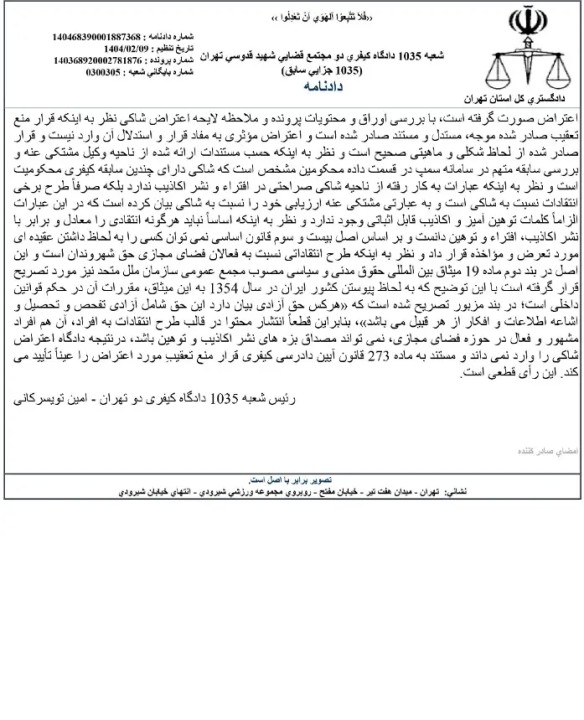 «فَلَا تَتَّبِعُوا الْهَوَىٰ أَنْ تَعْدِلُوا»
شماره دادنامه : 140468390001887368
تاریخ تنظیم : 1404/02/09
شماره پرونده : 140368920002781876
شماره بایگانی شعبه : 0300305
شعبه 1035 دادگاه کیفری دو مجتمع قضایی شهید قدوسی تهران
(1035 جزایی سابق)
دادنامه
دادگستري کل استان تهران
اعتراض صورت گرفته است، با بررسی اوراق و محتویات پرونده و ملاحظه لایحه اعتراض شاکی نظر به اینکه قرار منع
تعقیب صادر شده موجه، مستدل و مستند صادر شده است و اعتراض مؤثری به مفاد قرار و استدلال آن وارد نیست و قرار
صادر شده از لحاظ شکلی و ماهیتی صحیح است و نظر به اینکه حسب مستندات ارائه شده از ناحیه وکیل مشتکی عنه و
بررسی سابقه متهم در سامانه سمپ در قسمت داده محکومین مشخص است که شاکی دارای چندین سابقه کیفری محکومیت
است و نظر به اینکه عبارات به کار رفته از ناحیه شاکی صراحتی در افتراء و نشر اکاذیب ندارد بلکه صرفاً طرح برخی
انتقادات نسبت به شاکی است و به عبارتی مشتکی عنه ارزیابی خود را نسبت به شاکی بیان کرده است که در این عبارات
الزاماً کلمات توهین آمیز و اکاذیب قابل اثباتی وجود ندارد و نظر به اینکه اساساً نباید هرگونه انتقادی را معادل و برابر با
نشر اکاذیب، افتراء و توهین دانست و بر اساس اصل بیست و سوم قانون اساسی نمی توان کسی را به لحاظ داشتن عقیده ای
مورد تعرض و مؤاخذه قرار داد و نظر به اینکه طرح انتقاداتی نسبت به فعالان فضای مجازی حق شهروندان است و این
اصل در بند دوم ماده 19 میثاق بین المللی حقوق مدنی و سیاسی مصوب مجمع عمومی سازمان ملل متحد نیز مورد تصریح
قرار گرفته است با این توضیح که به لحاظ پیوستن کشور ایران در سال 1354 به این میثاق، مقررات آن در حکم قوانین
داخلی است؛ در بند مزبور تصریح شده است که «هرکس حق آزادی بیان دارد این حق شامل آزادی تفحص و تحصیل و
اشاعه اطلاعات و افکار از هر قبیل می باشد»، بنابراین قطعاً انتشار محتوا در قالب طرح انتقادات به افراد، آن هم افراد
مشهور و فعال در حوزه فضای مجازی، نمی تواند مصداق بزه های نشر اکاذیب و توهین باشد، درنتیجه دادگاه اعتراض
شاکی را وارد نمی داند و مستند به ماده 273 قانون آیین دادرسی کیفری قرار منع تعقیب مورد اعتراض را عیناً تأیید می
کند. این رأی قطعی است.
رئیس شعبه 1035 دادگاه کیفری دو تهران - امین تویسرکانی
امضاي صادر کننده
تصویر برابر با اصل است.
نشانی: تهران - میدان هفت تیر - خیابان مفتح - روبروي مجموعه ورزشي شیرودي - انتهاي خیابان شیرودي